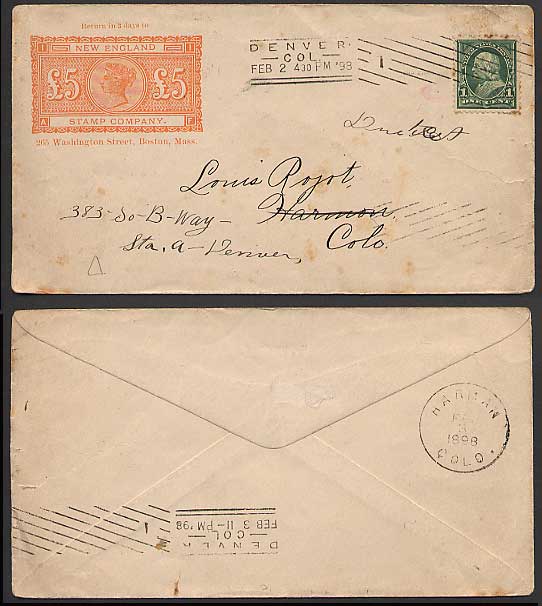 Return in 3 days to
1 NEW ENGLAND 1
£5 £5
A STAMP COMPANY. F
265 Washington Street, Boston, Mass.
DENVER
COL.
FEB 2 430 PM '98
1
1 1
ONE CENT
Due 1 ct
Louis Pojot,
Harmon,
383 So B-Way-
Colo.
Sta. A- Denver,
HARMAN
FEB
3
1898
COLO.
DENVER
COL
FEB 3 11-PM '98
1